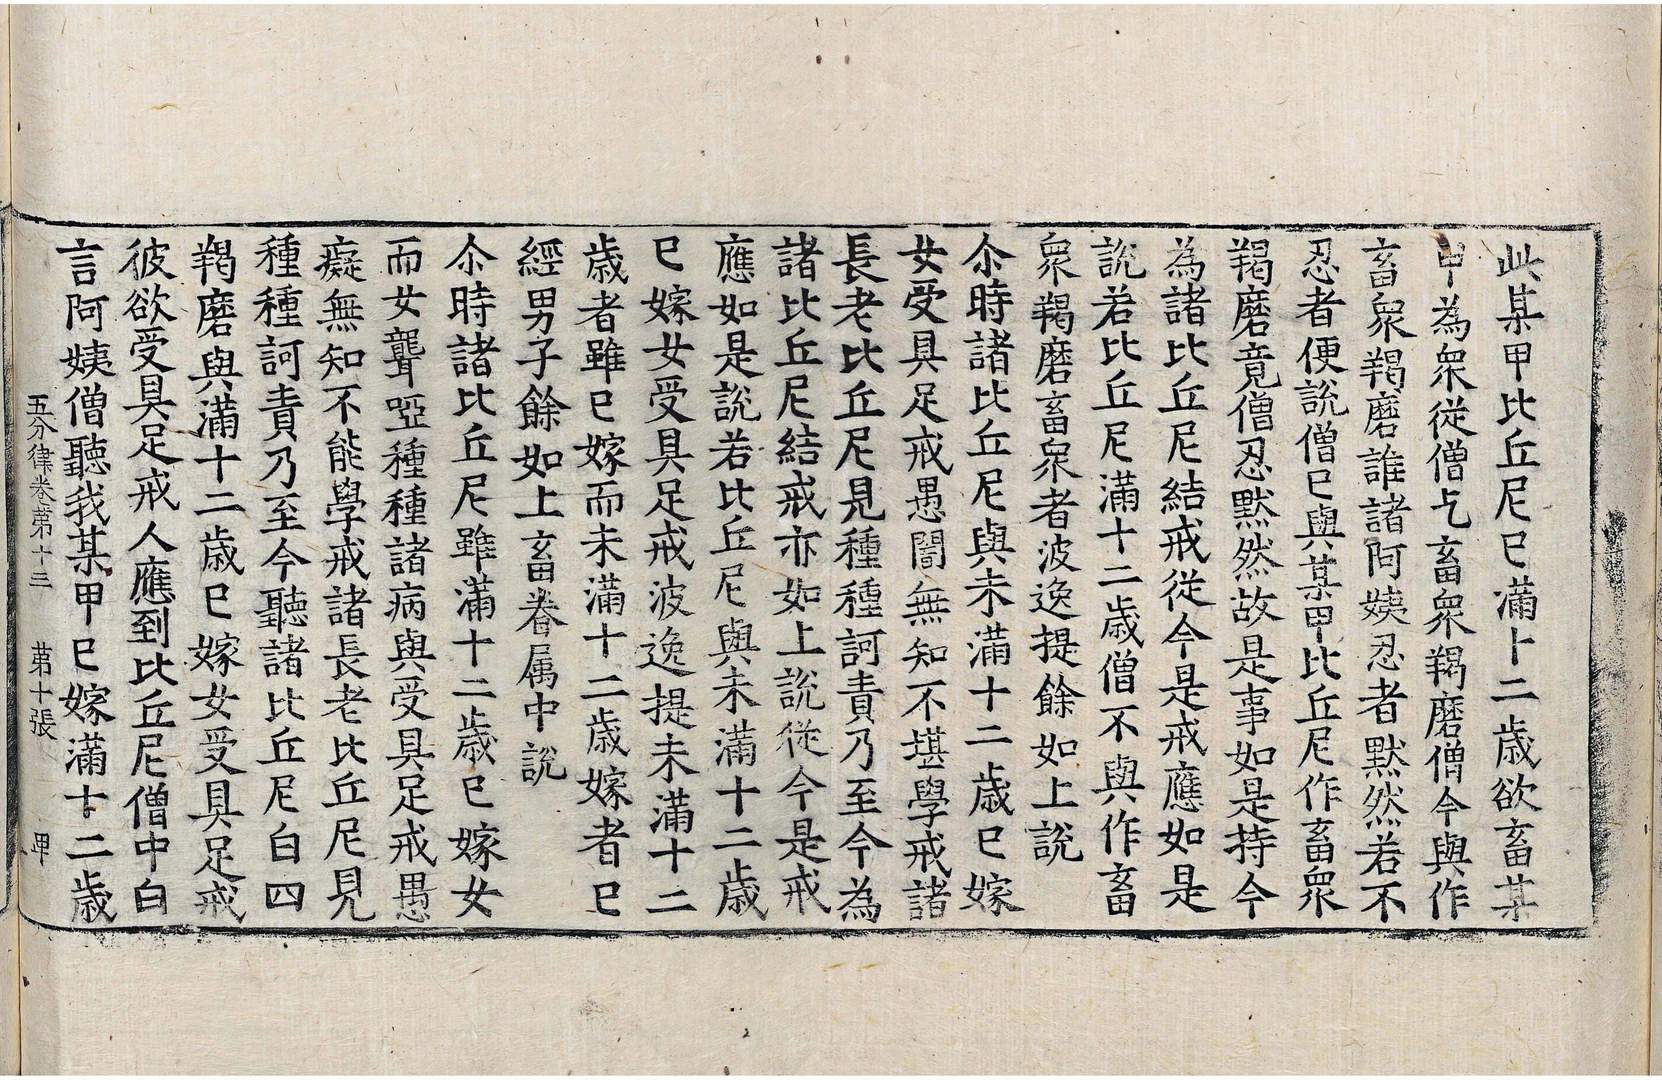 此某甲比丘尼已滿十二歲欲畜某
甲為衆從僧乞畜衆羯磨僧今與作
畜衆羯磨誰諸阿姨忍者默然若不
忍者便說僧已與某甲比丘尼作畜衆
羯磨竟僧忍默然故是事如是持今
為諸比丘尼結戒從今是戒應如是
說若比丘尼滿十二歲僧不與作畜
衆羯磨畜衆者波逸提餘如上說
尒時諸比丘尼與未滿十二歲已嫁
女受具足戒愚闇無知不堪學戒諸
長老比丘尼見種種訶責乃至今為
諸比丘尼結戒亦如上說從今是戒
應如是說若比丘尼與未滿十二歲
已嫁女受具足戒波逸提未滿十二
歲者雖已嫁而未滿十二歲嫁者已
經男子餘如上畜眷属中說
尒時諸比丘尼雖滿十二歲已嫁女
而女聾啞種種諸病與受具足戒愚
癡無知不能學戒諸長老比丘尼見
種種訶責乃至今聽諸比丘尼白四
羯磨與滿十二歲已嫁女受具足戒
彼欲受具足戒人應到比丘尼僧中白
言阿姨僧聽我某甲已嫁滿十二歲
五分律卷第十三 第十張 甲